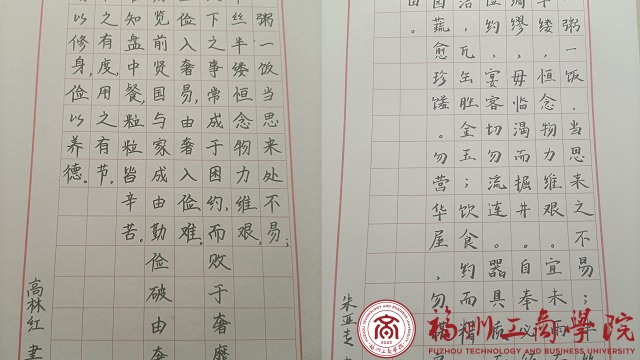 粥一饭当思来处不易；
丝半缕恒念物力维艰，
下之事常成于困约，而败于奢靡
俭入奢易，由奢入俭难。
览前贤国与家成由勤俭破由奢
知盘中餐，粒粒皆辛苦。
之有度，用之有节。
以修身，俭以养德。
高林红 書
粥，一饭，当思来之不易；
缕，恒念物力维艰。宜未雨
缪，毋临渴而掘井。自奉
俭约，宴客切勿流连。器具质
洁，瓦缶胜金玉；饮食约而精
园蔬愈珍馐。勿营华屋，勿谋
福州工商学院
FUZHOU TECHNOLOGY AND BUSINESS UNIVERSITY